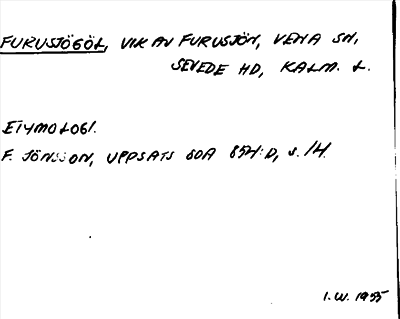 FURUSJÖGÖL, VIK AV FURUSJÖN, VENA SN,
SEVEDE HD, KALM. L.
ETYMOLOGI.
F. JÖNSSON, UPPSATS SOA 854:D, S. 14.
I.W. 1955